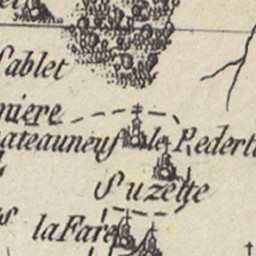 Sablet
niere
ateauneuf le Redert
Suzette
la Fare